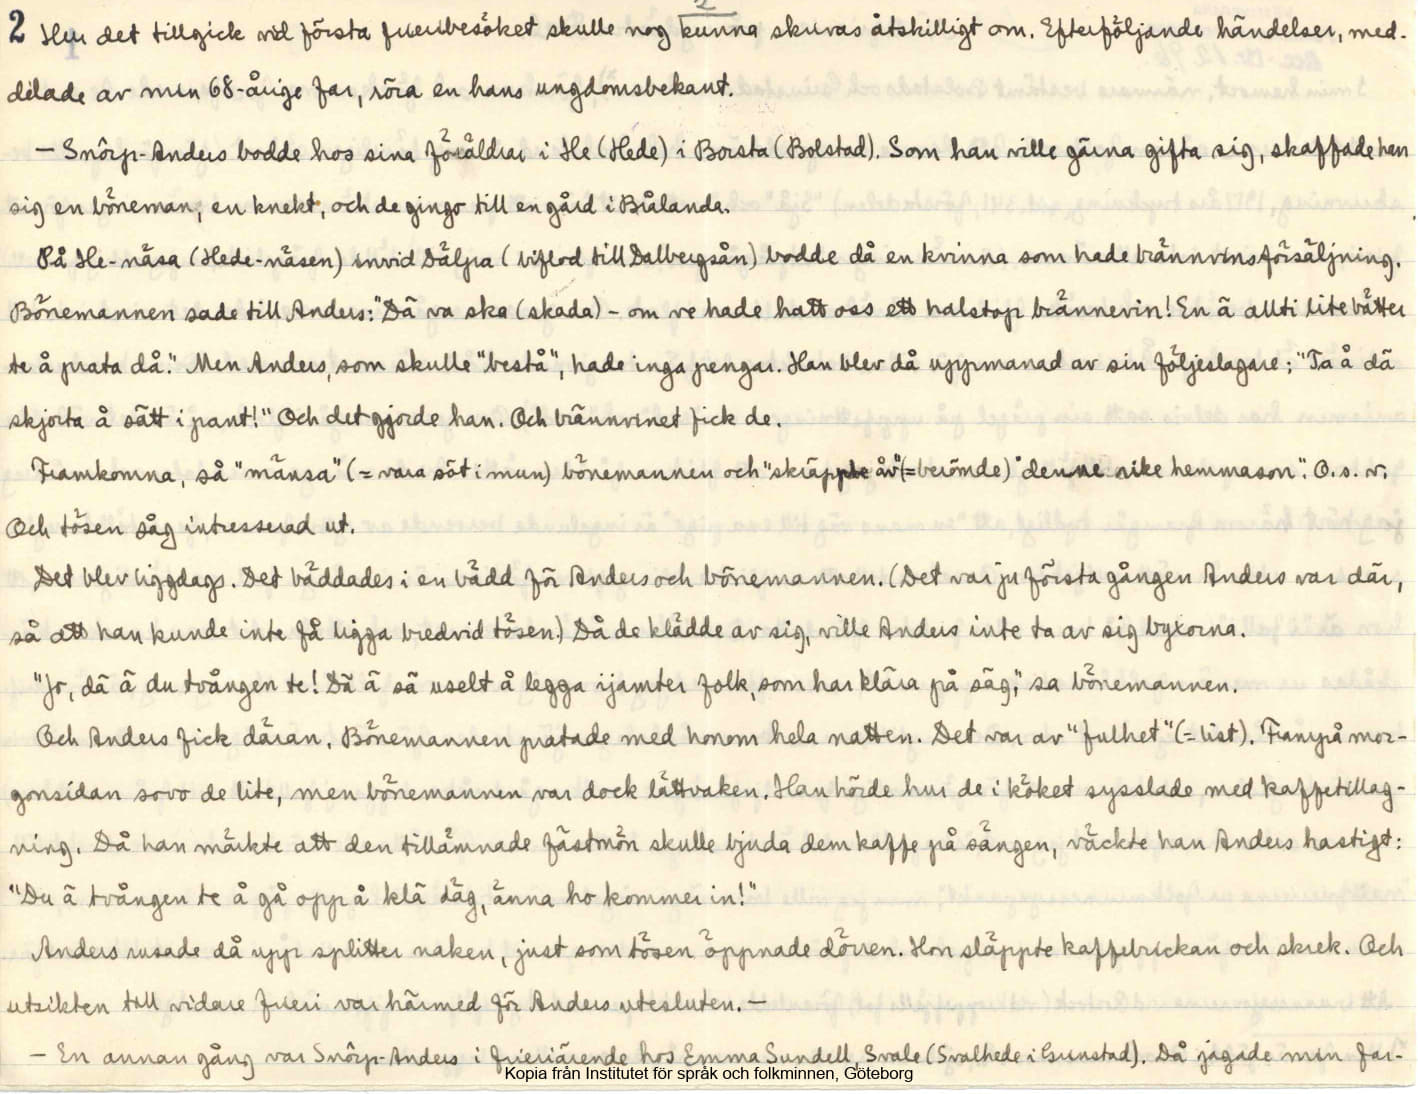 2
2 Hur det tillgick vid första frieribesöket skulle nog kunna skrivas åtskilligt om. Efterföljande händelser, med-
delade av min 68-årige far, röra en hans ungdomsbekant.
— Snörp-Anders bodde hos sina föräldrar i He (Hede) i Borsta (Bolstad). Som han ville gärna gifta sig, skaffade han
sig en böneman, en knekt, och de gingo till en gård i Brålanda.
På He-näsa (Hede-näsen) invid Dälpra (biflod till Dalbergsån) bodde då en kvinna som hade brännvinsförsäljning.
Bönemannen sade till Anders: "Dä va ska (skada) - om ve hade hatt oss ett halstop brännevin! En ä allti lite bätter
te å prata då." Men Anders, som skulle "bestå", hade inga pengar. Han blev då uppmanad av sin följeslagare; "Ta å dä
skjorta å sätt i pant!" Och det gjorde han. Och brännvinet fick de.
Framkomna, så "mänsa" (= vara söt i mun) bönemannen och "skräppte åv" (= berömde) "denne rike hemmason". O. s. v.
Och tösen såg intresserad ut.
Det blev liggdags. Det bäddades i en bädd för Anders och bönemannen. (Det var ju första gången Anders var där,
så att han kunde inte få ligga bredvid tösen.) Då de klädde av sig, ville Anders inte ta av sig byxorna.
"Jo, dä ä du tvången te! Dä ä sä uselt å legga ijamter folk, som har klära på säg," sa bönemannen.
Och Anders fick däran. Bönemannen pratade med honom hela natten. Det var av "fulhet" (= list). Frampå mor-
gonsidan sovo de lite, men bönemannen var dock lättvaken. Han hörde hur de i köket sysslade med kaffetillag-
ning. Då han märkte att den tillämnade fästmön skulle bjuda dem kaffe på sängen, väckte han Anders hastigt:
"Du ä tvången te å gå opp å klä däg, änna ho kommer in!"
Anders rusade då upp splitter naken, just som tösen öppnade dörren. Hon släppte kaffebrickan och skrek. Och
utsikten till vidare frieri var härmed för Anders utesluten. —
— En annan gång var Snörp-Anders i frieriärende hos Emma Sundell, Svale (Svalhede i Grinstad). Då jagade min far-
Kopia från Institutet för språk och folkminnen, Göteborg